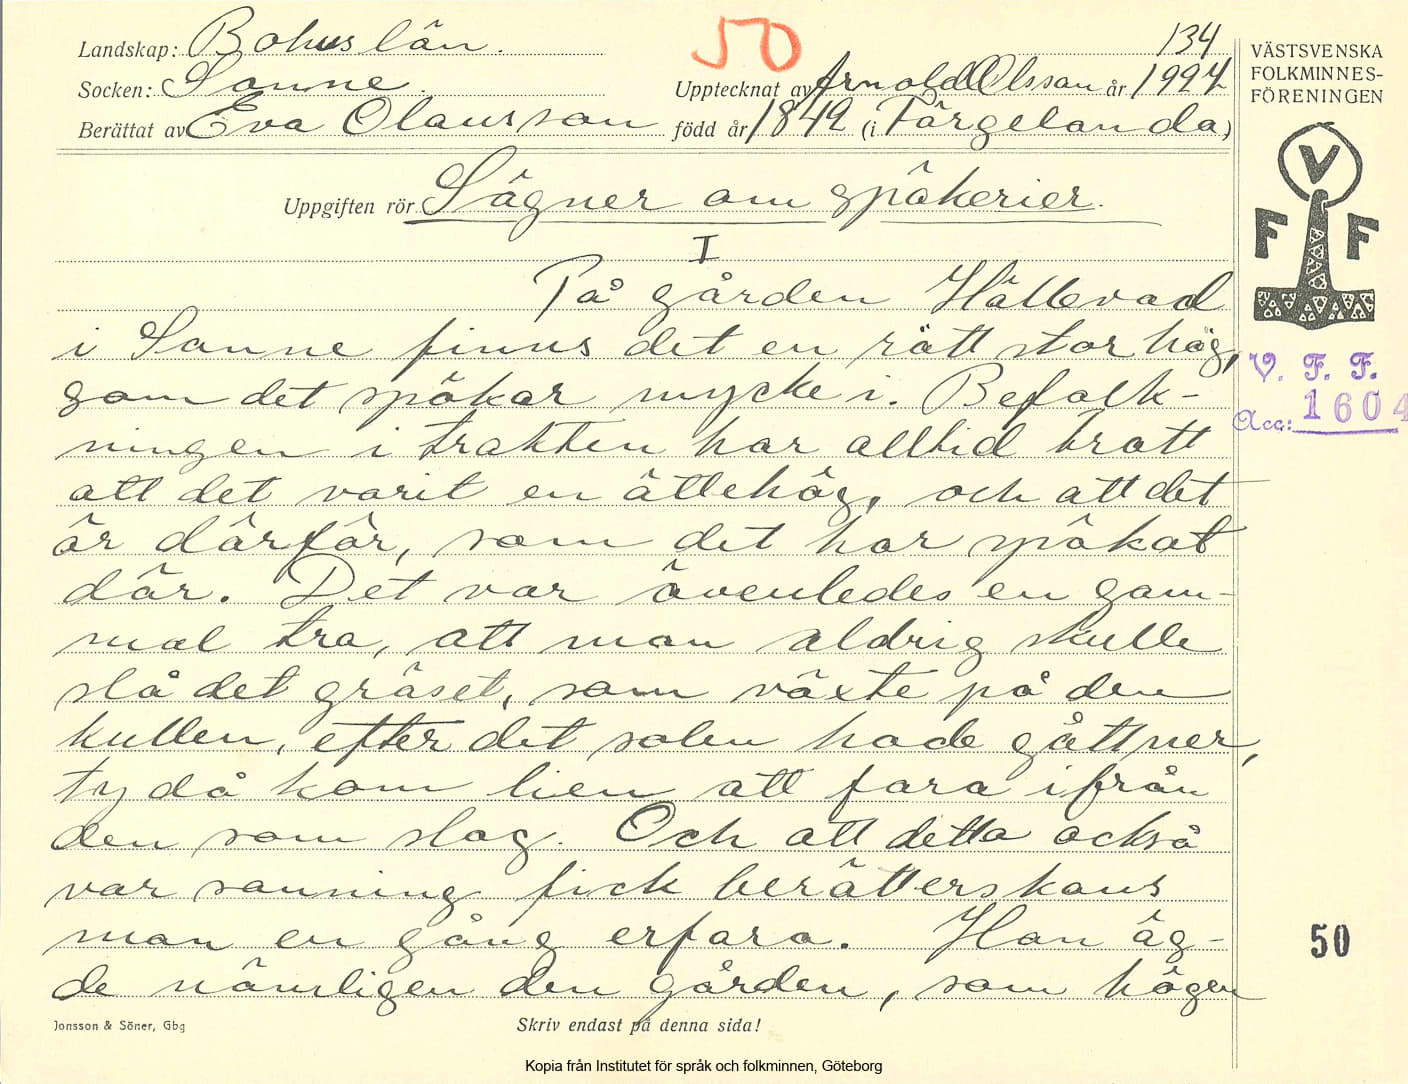 50
134
Landskap: Bohuslän.
Socken: Sanne.
Upptecknat av Arnold Olsson år 1927
Berättat av Eva Olausson född år 1842 (i Färgelanda)
VÄSTSVENSKA
FOLKMINNES-
FÖRENINGEN
V
F F
Uppgiften rör Sägner om spökerier.
I
På gården Hällevad
i Sanne finns det en rätt stor hög,
som det spökar mycke i. Befolk-
ningen i trakten har alltid trott
att det varit en ättehög, och att det
är därför, som det har spökat
där. Det var ävenledes en gam-
mal tro, att man aldrig skulle
slå det gräset, som växte på den
kullen, efter det solen hade gått ner,
ty då kom lien att fara ifrån
den som slog. Och att detta också
var sanning fick berätterskans
man en gång erfara. Han äg-
de nämligen den gården, som högen
V. F. F.
Acc: 1604
50
Jonsson & Söner, Gbg
Skriv endast på denna sida!
Kopia från Institutet för språk och folkminnen, Göteborg